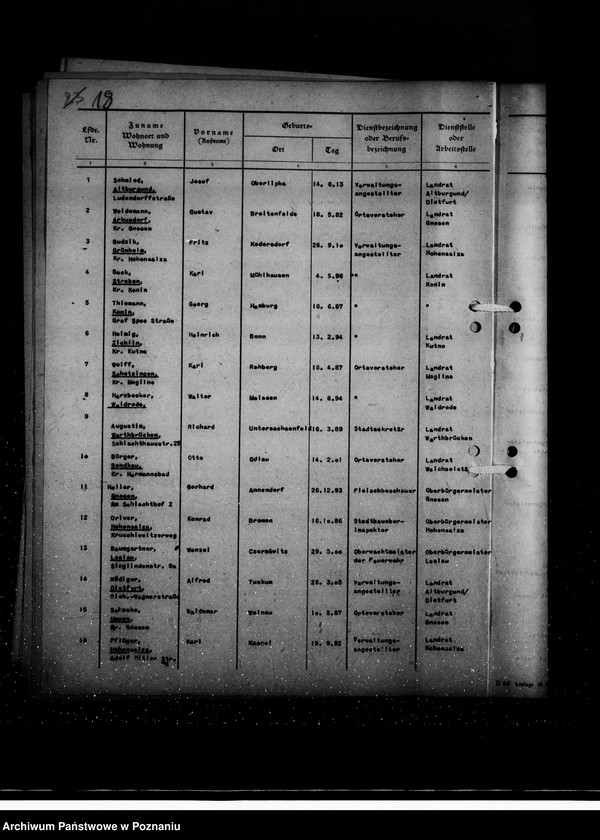 18
Lfde. Nr. Zuname Wohnort und Wohnung Vorname (Rufname) Geburts- Ort Tag Dienstbezeichnung oder Berufs-bezeichnung Dienststelle oder Arbeitsstelle
1 2 3 4 5 6
1 Schmied, Josef Oberlipka 14. 6.13 Verwaltungs- Landrat
Altburgund, angestellter Altburgund/
Ludendorffstraße Dietfurt
2 Weidemann, Gustav Breitenfelde 18. 5.82 Ortsvorsteher Landrat
Arkusdorf, Gnesen
Kr. Gnesen
3 Budzik, Fritz Kodersdorf 26. 9.10 Verwaltungs- Landrat
Grünheim, angestellter Hohensalza
Kr. Hohensalza
4 Beck, Karl Mühlhausen 4. 5.96 "" Landrat
Kr. Konin Konin
5 Thiemann, Georg Hamburg 16. 6.87 " "
Konin,
Graf Spee Straße
6 Helmig, Heinrich Bonn 13. 2.94 " Landrat
Zichlin, Kutno
Kr. Kutno
7 Wolff, Karl Rehberg 16. 4.87 Ortsvorsteher Landrat
Kr. Mogilno Mogilno
8 Harzbecker, Walter Meissen 14. 8.94 " Landrat
Waldrode. Waldrode
9
Augustin, Richard Untersachsenfeld 16. 3.89 Stadtsekretär Landrat
Warthbrücken, Warthbrücken
Schlachthausstr.29
10 Bürger, Otto 14. 2.01 Ortsvorsteher Landrat
Kr. Hermannsbad
11 Heller, Gerhard Annendorf 26.12.93 Fleischbeschauer Oberbürgermeister
Gnesen, Gnesen
Am Schlachthof 2
12 Driver, Konrad Bremen 16.10.86 Stadtbauober- Oberbürgermeister
Hohensalza, inspektor Hohensalza
13 Baumgartner, Wenzel 29. 5.00 Oberwachtmeister Oberbürgermeister
Leslau, der Feuerwehr Leslau
Sieglindenstr. 9a
14 Rüdiger, Alfred Tuckum Verwaltungs- Landrat
Dietfurt, angestellter Altburgund/
Rich.-Wagnerstraße Dietfurt
15 Waldemar Welnau Ortsvorsteher Landrat
Kr. Gnesen Gnesen
16 Pflüger, Karl 19. 9.92 Verwaltungs- Landrat
Hohensalza, angestellter Hohensalza
Adolf Hitler Str.
Archiwum Państwowe w Poznaniu